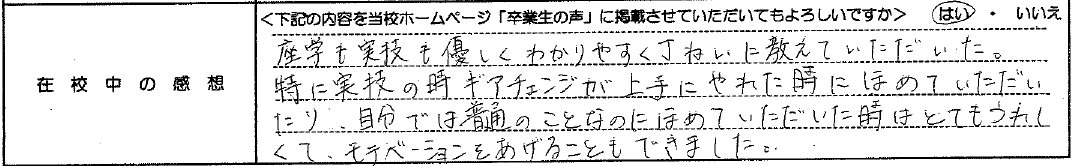 <下記の内容を当校ホームページ「卒業生の声」に掲載させていただいてもよろしいですか> はい ・ いいえ
在校中の感想
座学も実技も優しくわかりやすく丁ねいに教えていただいた。
特に実技の時ギアチェンジが上手にやれた時にほめていただい
たり、自分では普通のことなのにほめていただいた時はとてもうれし
くて、モチベーションをあげることもできました。